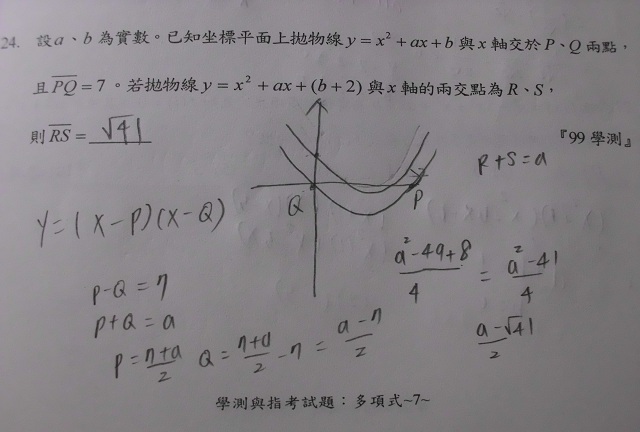 24. 設a、b 為實數。已知坐標平面上拋物線 y = x² + ax + b 與 x 軸交於 P、Q 兩點，
且 PQ = 7。若拋物線 y = x² + ax + (b + 2) 與 x 軸的兩交點為 R、S，
則 RS = √41
『99 學測』
R+S=a
Q
P
Y=(X-P)(X-Q)
a²-49+8/4 = a²-41/4
P-Q=7
P+Q=a
a-√41/2
P=7+a/2 Q=7+a/2-7=a-7/2
學測與指考試題：多項式~7~